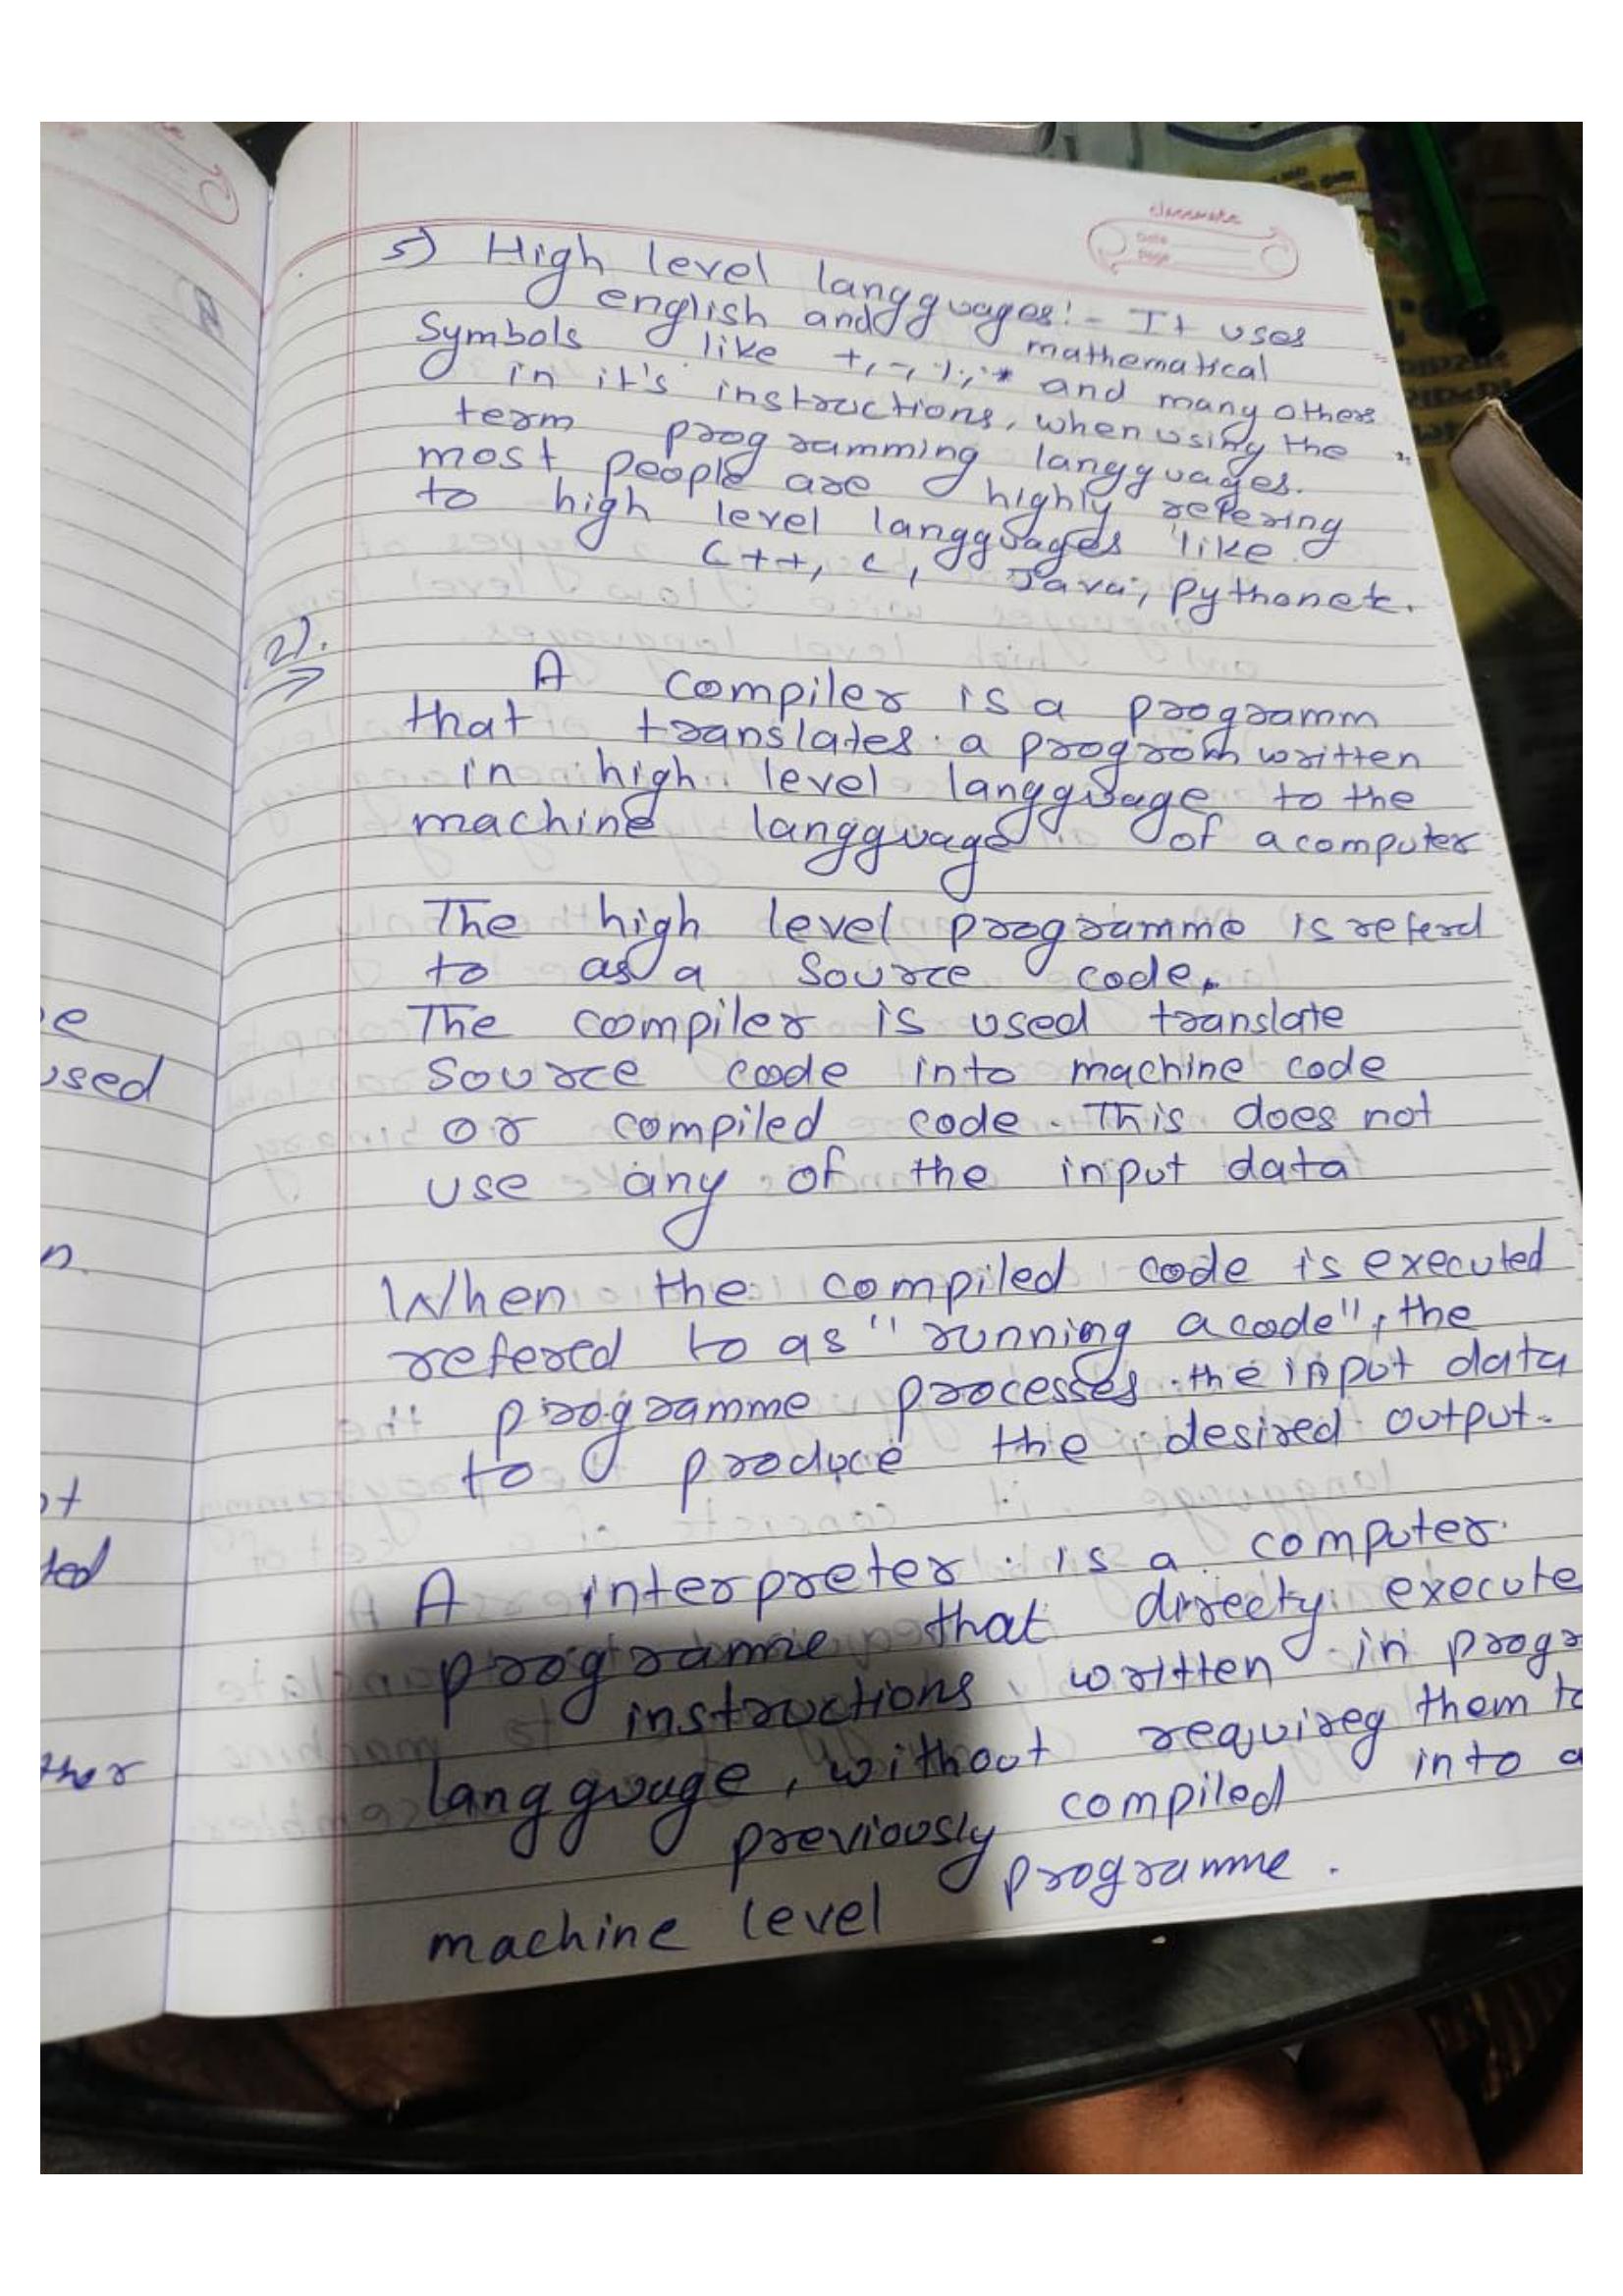 classmate
Date
Page
5) High level langguages:- It uses
english and mathematical
Symbols like +, -, %, * and many others
in it's instructions, when using the
term programming langguages.
most people are highly refering
to high level langguages like
C++, C, Java, Python etc.
2).
A compiler is a programm
that translates a program written
in high level langguage to the
machine langguage of a computer
The high level programme is referd
to as a Source code.
The compiler is used translate
Source code into machine code
or compiled code. This does not
use any of the input data
When the compiled code is executed
refered to as "running a code", the
programme processes the input data
to produce the desired output.
A interpreter is a computer
programme that direcety execute
instructions written in progr
langguage, without requireg them to
previously compiled into a
machine level programme.
e
used
n.
ot
ted
ther